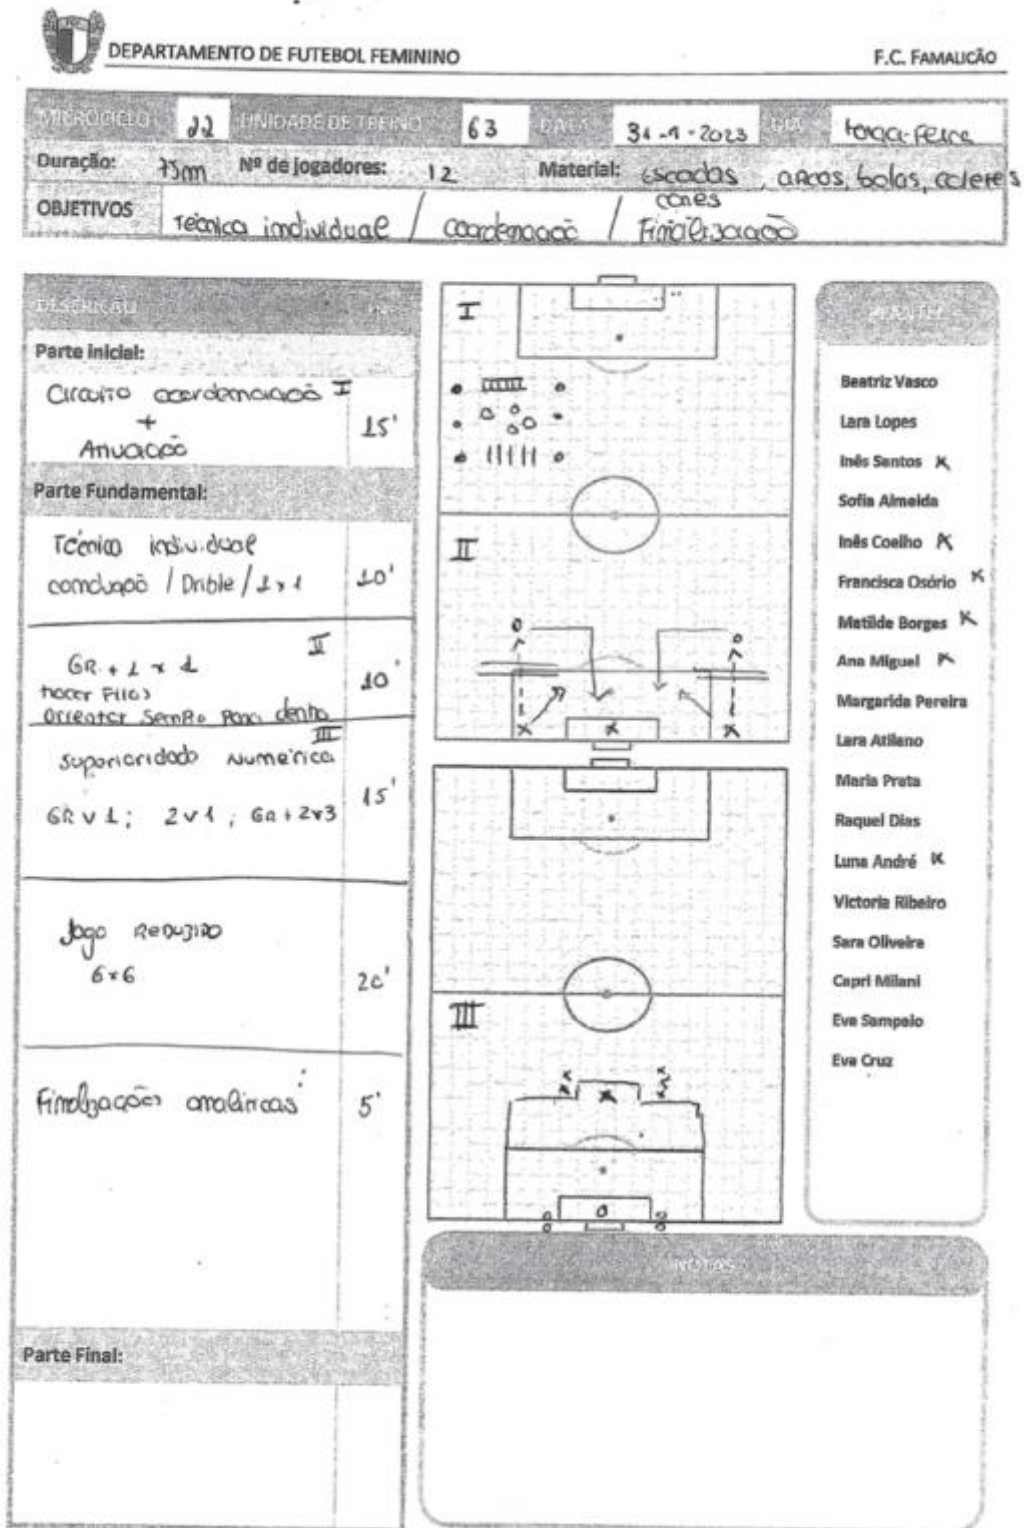 DEPARTAMENTO DE FUTEBOL FEMININO
F.C. FAMALICÃO
MICROCICLO: 22 UNIDADE DE TREINO 63 DATA 31-1-2023 terça-feira
Duração: 75m Nº de jogadores: 12 Material: escadas, arcos, bolas, coletes
cones
OBJETIVOS Técnica individual / coordenação / Finalização
DESCRIÇÃO
Parte inicial:
Circuito coordenação I
+
Ativação
15'
Parte Fundamental:
Técnica individual
condução / Drible / 1x1
10'
II
GR + 1 x 1
Orientar sempre para dentro
10'
III
Superioridade Numérica
GR v 1; 2v1; GR + 2v3
15'
Jogo Reduzido
6x6
20'
Finalizações analíticas
5'
Parte Final:
I
II
III
PLANTEL
Beatriz Vasco
Lara Lopes
Inês Santos x
Sofia Almeida
Inês Coelho x
Francisca Osório x
Matilde Borges x
Ana Miguel x
Margarida Pereira
Lara Atilano
Maria Prata
Raquel Dias
Luna André x
Victoria Ribeiro
Sara Oliveira
Capri Milani
Eva Sampaio
Eva Cruz
NOTAS